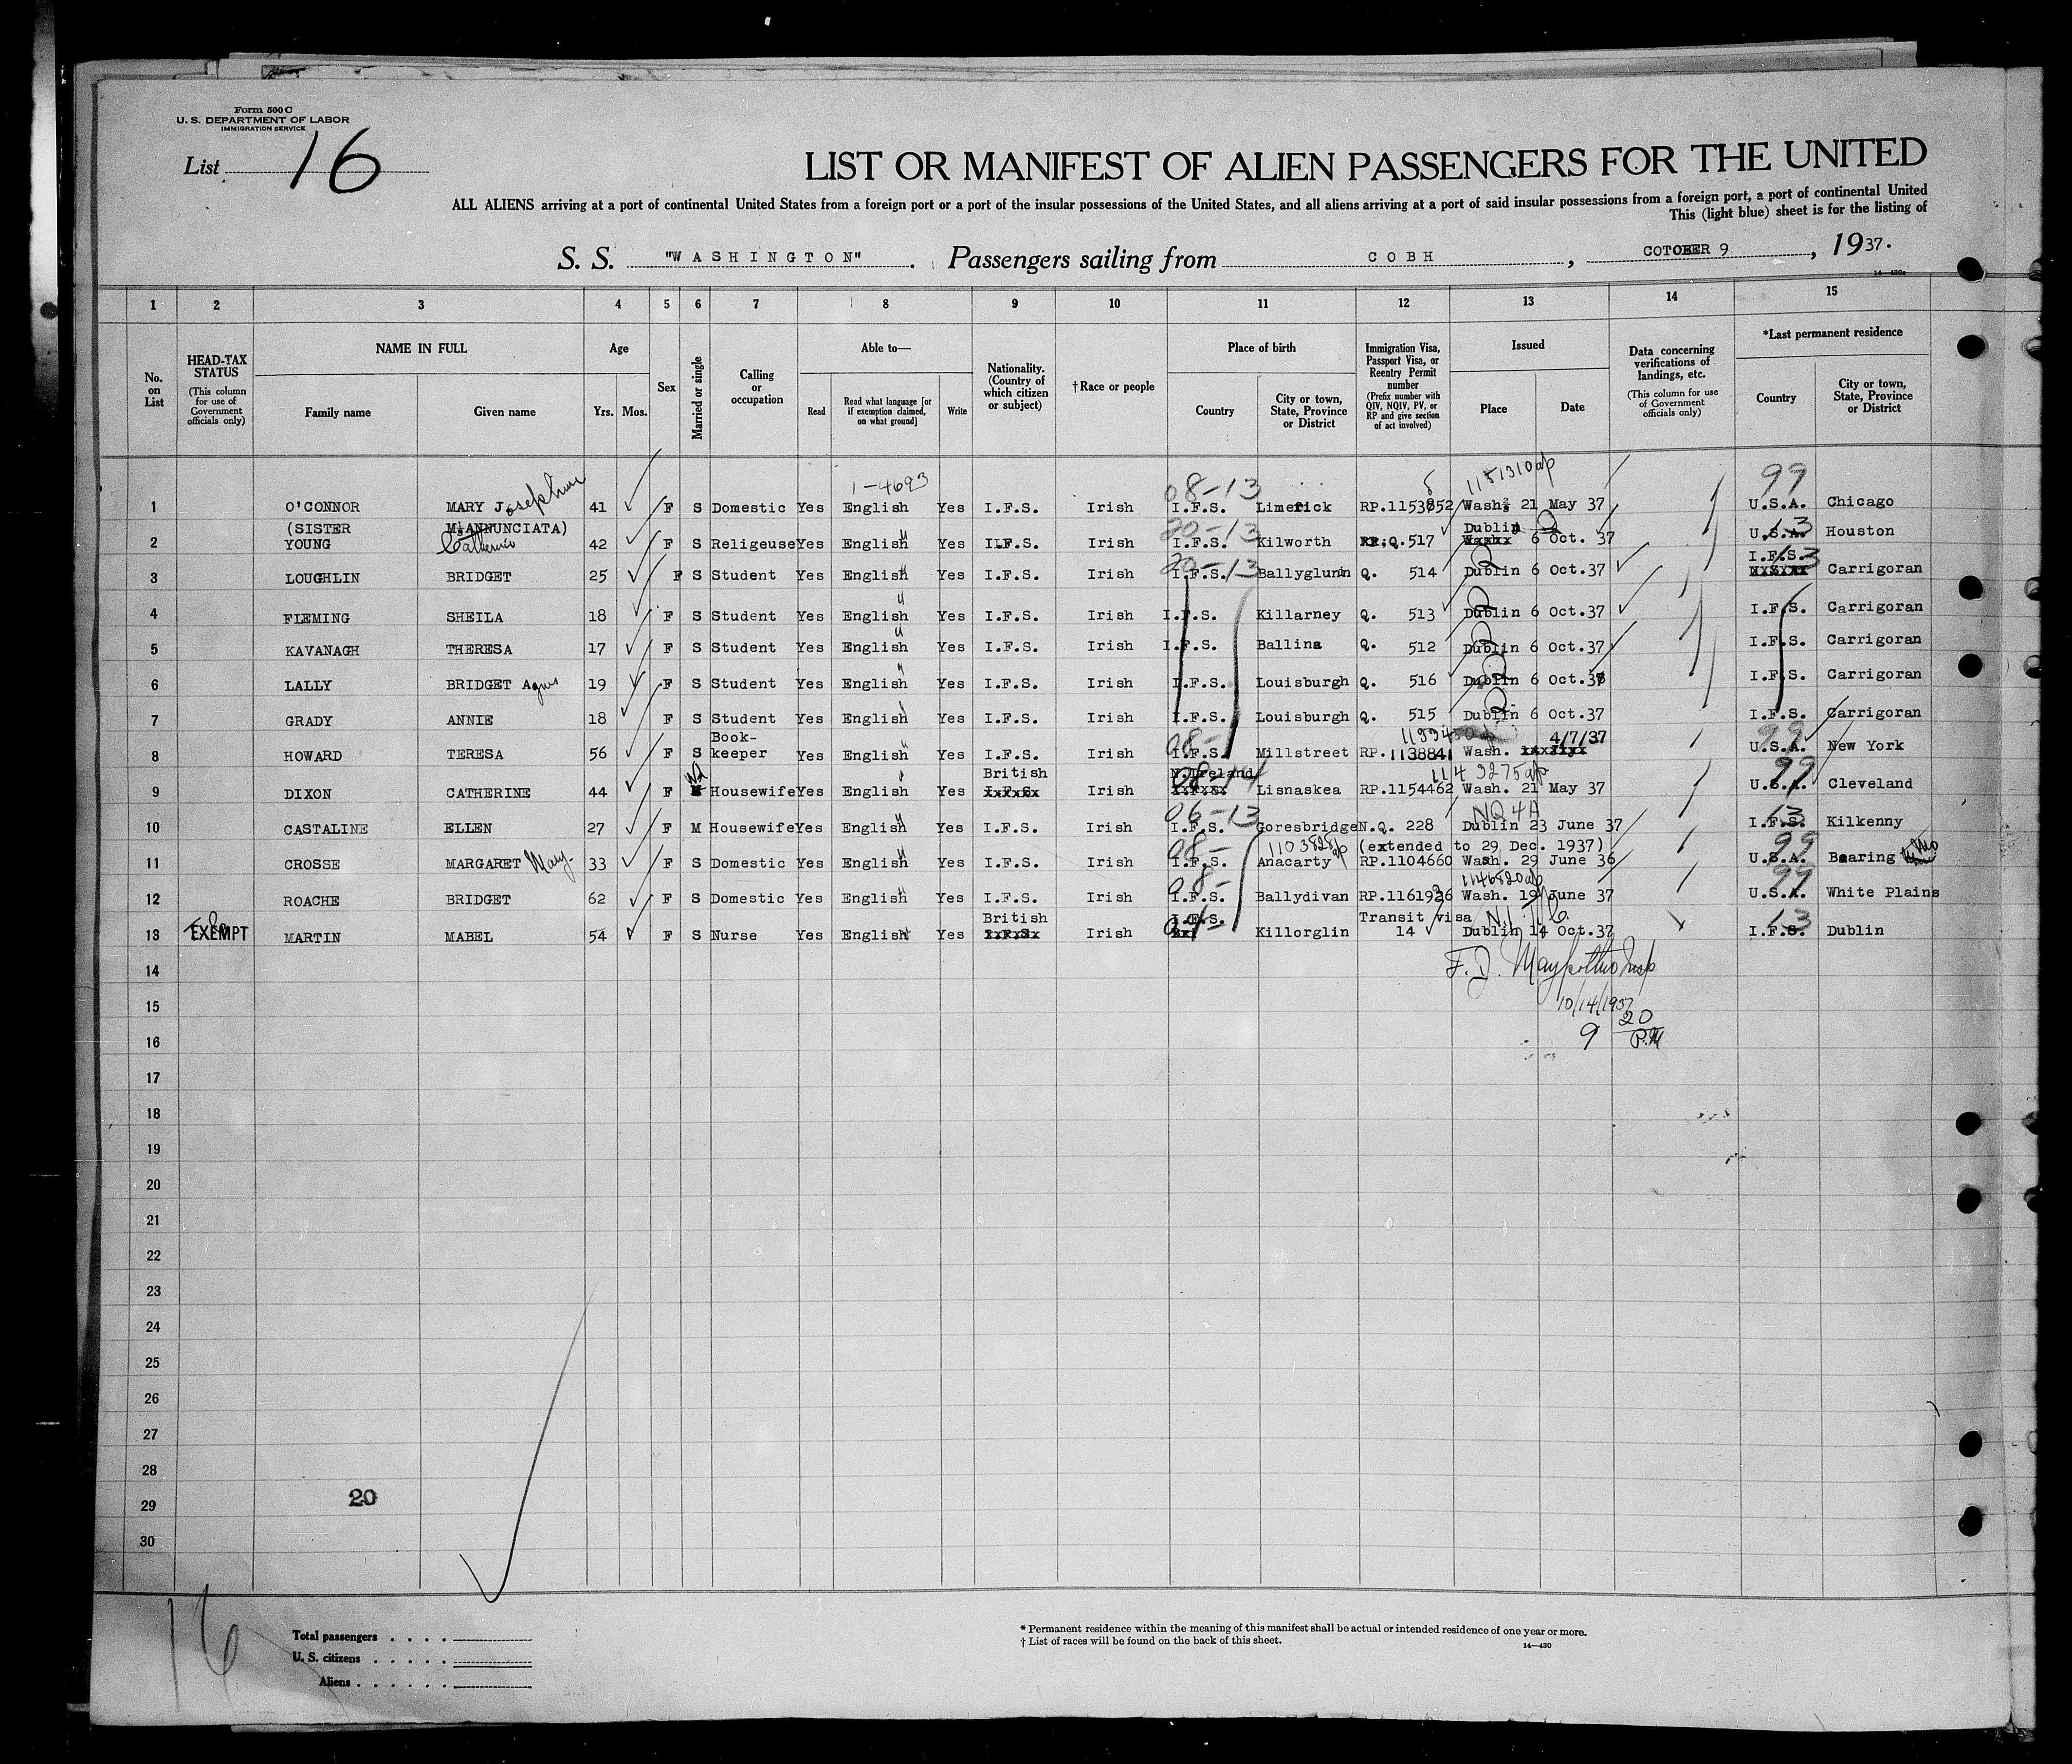 Form 500 C
U. S. DEPARTMENT OF LABOR
IMMIGRATION SERVICE
List 16
LIST OR MANIFEST OF ALIEN PASSENGERS FOR THE UNITED
ALL ALIENS arriving at a port of continental United States from a foreign port or a port of the insular possessions of the United States, and all aliens arriving at a port of said insular possessions from a foreign port, a port of continental United
This (light blue) sheet is for the listing of
S. S. "WASHINGTON". Passengers sailing from COBH, COTOBER 9, 1937.
14—430c
1 2 3 4 5 6 7 8 9 10 11 12 13 14 15
No. on List
HEAD-TAX STATUS (This column for use of Government officials only)
NAME IN FULL
Family name Given name
Age
Yrs. Mos.
Sex
Married or single
Calling or occupation
Able to—
Read Read what language [or if exemption claimed, on what ground] Write
Nationality. (Country of which citizen or subject)
†Race or people
Place of birth
Country City or town, State, Province or District
Immigration Visa, Passport Visa, or Reentry Permit number (Prefix number with QIV, NQIV, PV, or RP and give section of act involved)
Issued
Place Date
Data concerning verifications of landings, etc. (This column for use of Government officials only)
*Last permanent residence
Country City or town, State, Province or District
1-4693 08-13 1151310 99
1 O'CONNOR MARY Josephine 41 F S Domestic Yes English Yes I.F.S. Irish I.F.S. Limerick RP.1153852 Wash. 21 May 37 U.S.A. Chicago
(SISTER M. ANNUNCIATA) 20-13 Dublin 13
2 YOUNG Catherine 42 F S Religeuse Yes English Yes I.F.S. Irish I.F.S. Kilworth Q.517 6 Oct. 37 U.S.A. Houston
20-13 I.F.S. 3
3 LOUGHLIN BRIDGET 25 F S Student Yes English Yes I.F.S. Irish I.F.S. Ballyglunin Q. 514 Dublin 6 Oct.37 Carrigoran
4 FLEMING SHEILA 18 F S Student Yes English Yes I.F.S. Irish I.F.S. Killarney Q. 513 Dublin 6 Oct.37 I.F.S. Carrigoran
5 KAVANAGH THERESA 17 F S Student Yes English Yes I.F.S. Irish I.F.S. Ballina Q. 512 Dublin 6 Oct.37 I.F.S. Carrigoran
6 LALLY BRIDGET Agnes 19 F S Student Yes English Yes I.F.S. Irish I.F.S. Louisburgh Q. 516 Dublin 6 Oct.37 I.F.S. Carrigoran
7 GRADY ANNIE 18 F S Student Yes English Yes I.F.S. Irish I.F.S. Louisburgh Q. 515 Dublin 6 Oct.37 I.F.S. Carrigoran
Book- 08- 4/7/37 99
8 HOWARD TERESA 56 F S keeper Yes English Yes I.F.S. Irish I.F.S. Millstreet RP.1138841 Wash. U.S.A. New York
British N.Ireland 08-14 1143275 99
9 DIXON CATHERINE 44 F Wd Housewife Yes English Yes Irish Lisnaskea RP.1154462 Wash. 21 May 37 U.S.A. Cleveland
06-13 NQ 4A 13
10 CASTALINE ELLEN 27 F M Housewife Yes English Yes I.F.S. Irish I.F.S. Goresbridge N.Q. 228 Dublin 23 June 37 I.F.S. Kilkenny
08- 1103828 (extended to 29 Dec. 1937) 99
11 CROSSE MARGARET Mary- 33 F S Domestic Yes English Yes I.F.S. Irish I.F.S. Anacarty RP.1104660 Wash. 29 June 36 U.S.A. Bearing
08- 1146820 99
12 ROACHE BRIDGET 62 F S Domestic Yes English Yes I.F.S. Irish I.F.S. Ballydivan RP.1161926 Wash. 19 June 37 U.S.A. White Plains
British I.F.S. Transit visa 13
13 EXEMPT MARTIN MABEL 54 F S Nurse Yes English Yes Irish Killorglin 14 Dublin 14 Oct.37 I.F.S. Dublin
14
15 10/14/1937
16 9 20 P.M
17
18
19
20
21
22
23
24
25
26
27
28
29 20
30
16
Total passengers
U. S. citizens
Aliens
* Permanent residence within the meaning of this manifest shall be actual or intended residence of one year or more.
† List of races will be found on the back of this sheet.
14—430